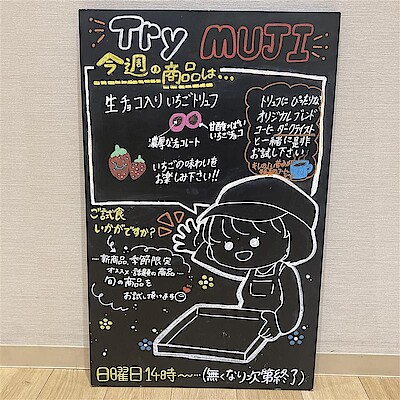 Try MUJI
今週の商品は...
生チョコ入りいちごトリュフ
甘酸っぱい
いちごチョコ
濃厚な生チョコレート
いちごの味わいを
お楽しみ下さい!!
トリュフにぴったりな
オリジナルブレンド
コーヒーダークテイスト
と一緒に是非
お試し下さい
ご試食
いかがですか?
...新商品、季節限定
オススメ・話題の商品
旬の商品を
お試し頂けます
日曜日14時〜...(無くなり次第終了)